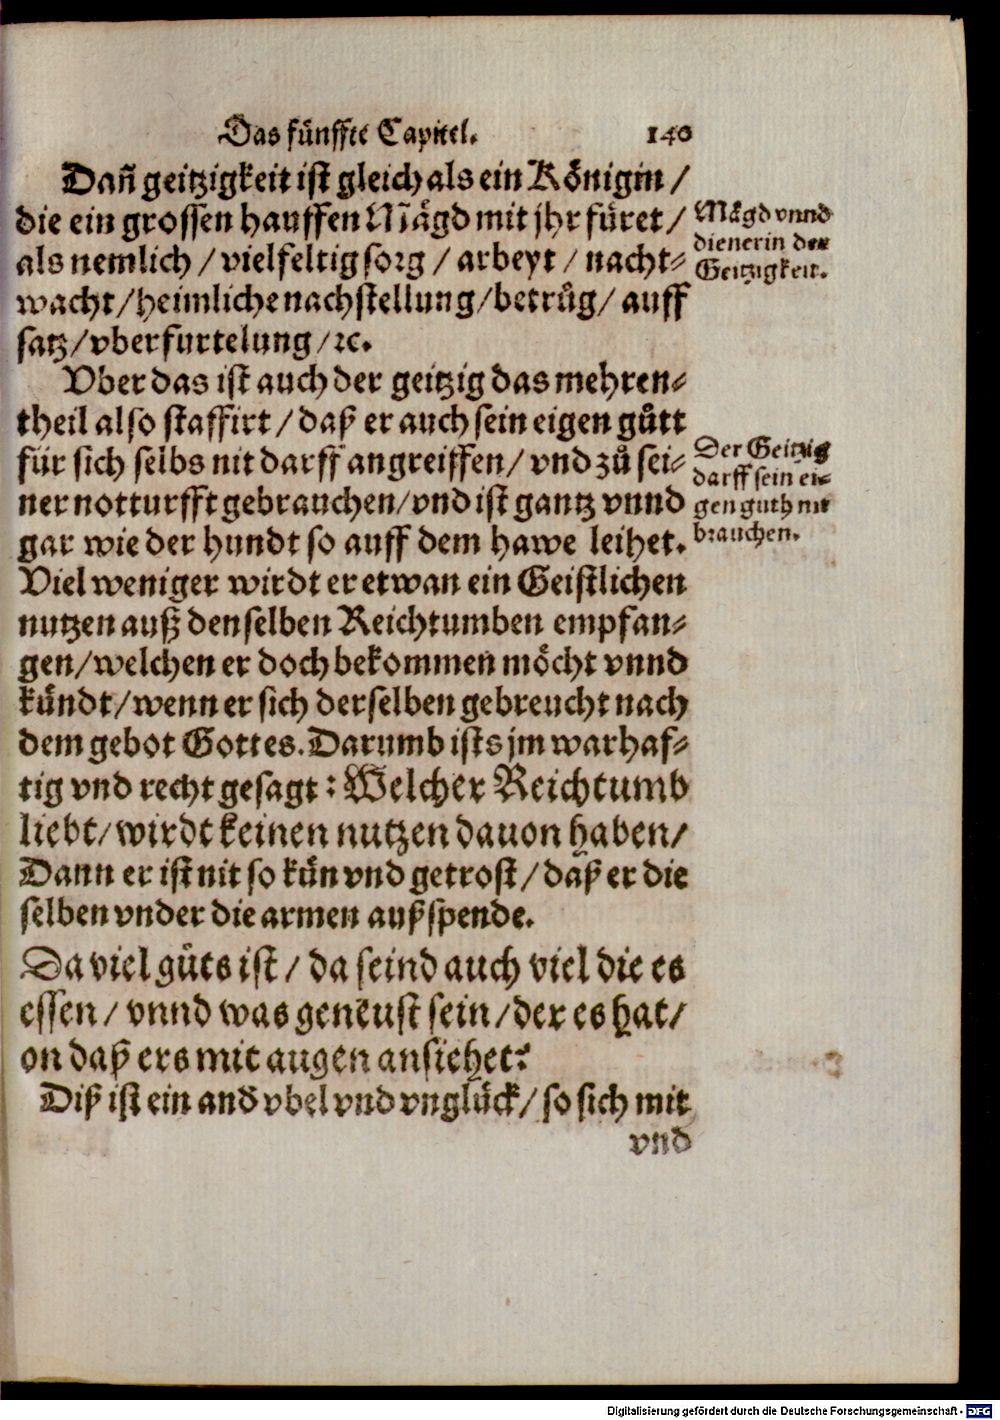 Das fünffte Capitel. 140
Dañ geitzigkeit ist gleich als ein Königin /
die ein grossen hauffen Mägd mit jhr füret /
als nemlich / vielfeltig sorg / arbeyt / nacht⸗
wacht / heimliche nachstellung / betrůg / auff
satz / vberfurtelung / ꝛc.
Mägd vnnd
dienerin der
Geitzigkeit.
Vber das ist auch der geitzig das mehren⸗
theil also staffirt / daß er auch sein eigen gůtt
für sich selbs nit darff angreiffen / vnd zů sei⸗
ner notturfft gebrauchen / vnd ist gantz vnnd
gar wie der hundt so auff dem hawe leihet.
Der Geitzig
darff sein ei⸗
gen guth nit
brauchen.
Viel weniger wirdt er etwan ein Geistlichen
nutzen auß denselben Reichtumben empfan⸗
gen / welchen er doch bekommen möcht vnnd
kündt / wenn er sich derselben gebreucht nach
dem gebot Gottes. Darumb ists jm warhaf⸗
tig vnd recht gesagt : Welcher Reichtumb
liebt / wirdt keinen nutzen dauon haben /
Dann er ist nit so kün vnd getrost / daß er die
selben vnder die armen außspende.
Da viel gůts ist / da seind auch viel die es
essen / vnnd was geneust sein / der es hat /
on daß ers mit augen ansiehet?
Diß ist ein and vbel vnd vnglück / so sich mit
vnd
Digitalisierung gefördert durch die Deutsche Forschungsgemeinschaft - DFG